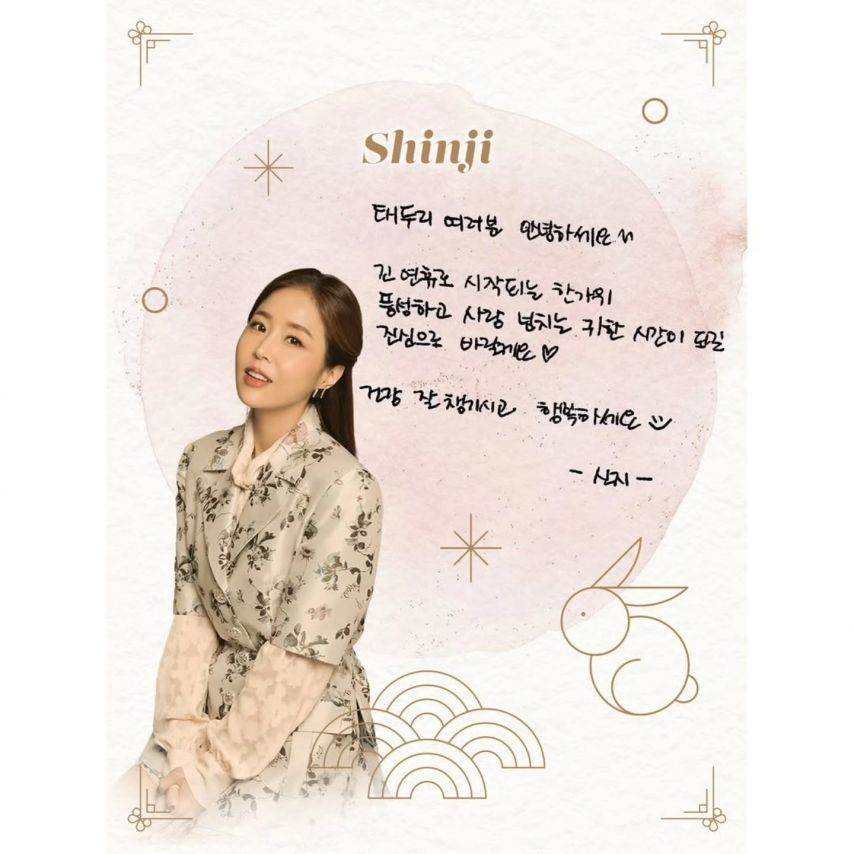 Shinji
태두리 여러분 안녕하세요~
긴 연휴로 시작되는 한가위
풍성하고 사랑 넘치는 귀한 시간이 되길
진심으로 바랄게요♡
건강 잘 챙기시고 행복하세요
- 신지 -